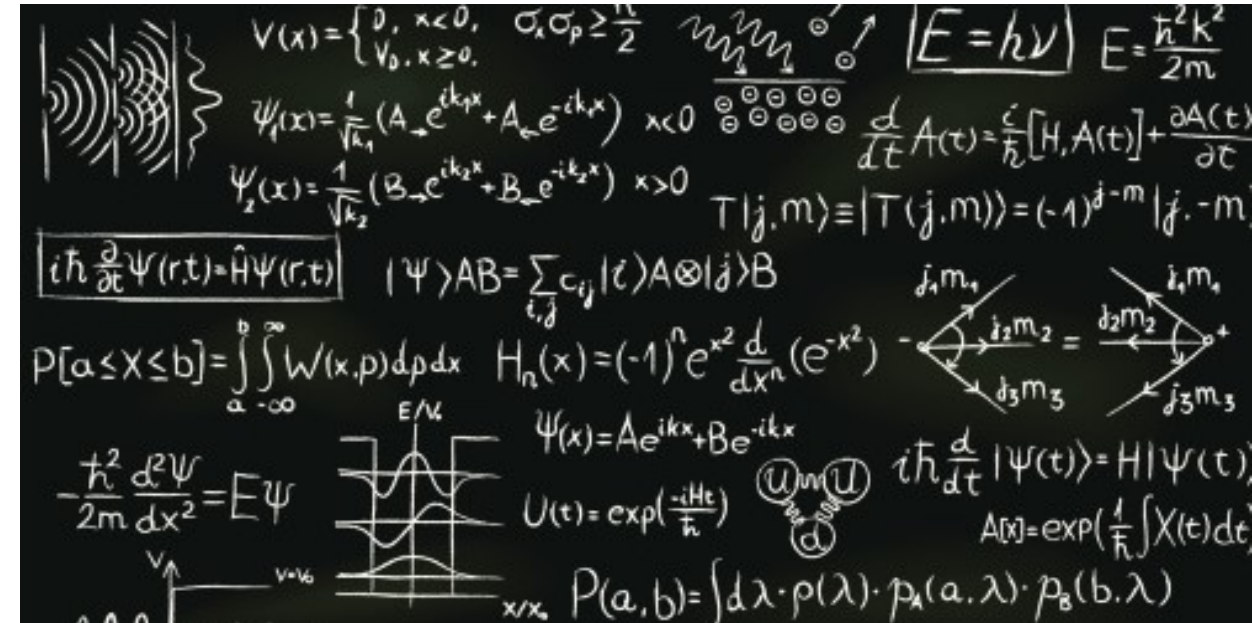 V(x)={0, x<0,
V₀, x≥0.
σₓσₚ≥ħ/2
E=hν
E=ħ²k²/2m
ψ₁(x)=1/√k₁ (A→e^{ik₁x}+A←e^{-ik₁x}) x<0
d/dt A(t)=i/ħ[H,A(t)]+∂A(t)/∂t
ψ₂(x)=1/√k₂ (B→e^{ik₂x}+B←e^{-ik₂x}) x>0
T|j,m⟩≡|T(j,m)⟩=(-1)^{j-m}|j,-m
iħ ∂/∂t Ψ(r,t)=ĤΨ(r,t)
|Ψ⟩AB=∑_{i,j} c_{ij}|i⟩A⊗|j⟩B
j₁m₁ j₂m₂ j₃m₃ - = + j₁m₁ j₂m₂ j₃m₃
P[a≤X≤b]=∫_a^b ∫_{-∞}^{∞} W(x,p)dpdx
Hₙ(x)=(-1)ⁿe^{x²} d/dxⁿ (e^{-x²})
E/V₀
Ψ(x)=Ae^{ikx}+Be^{-ikx}
-ħ²/2m d²Ψ/dx²=EΨ
U(t)=exp(-iHt/ħ)
u u d
iħ d/dt |Ψ(t)⟩=H|Ψ(t)⟩
A[x]=exp(1/ħ ∫X(t)dt
V
V=V₀
x/x₀
P(a,b)=∫dλ·ρ(λ)·p_A(a,λ)·p_B(b,λ)